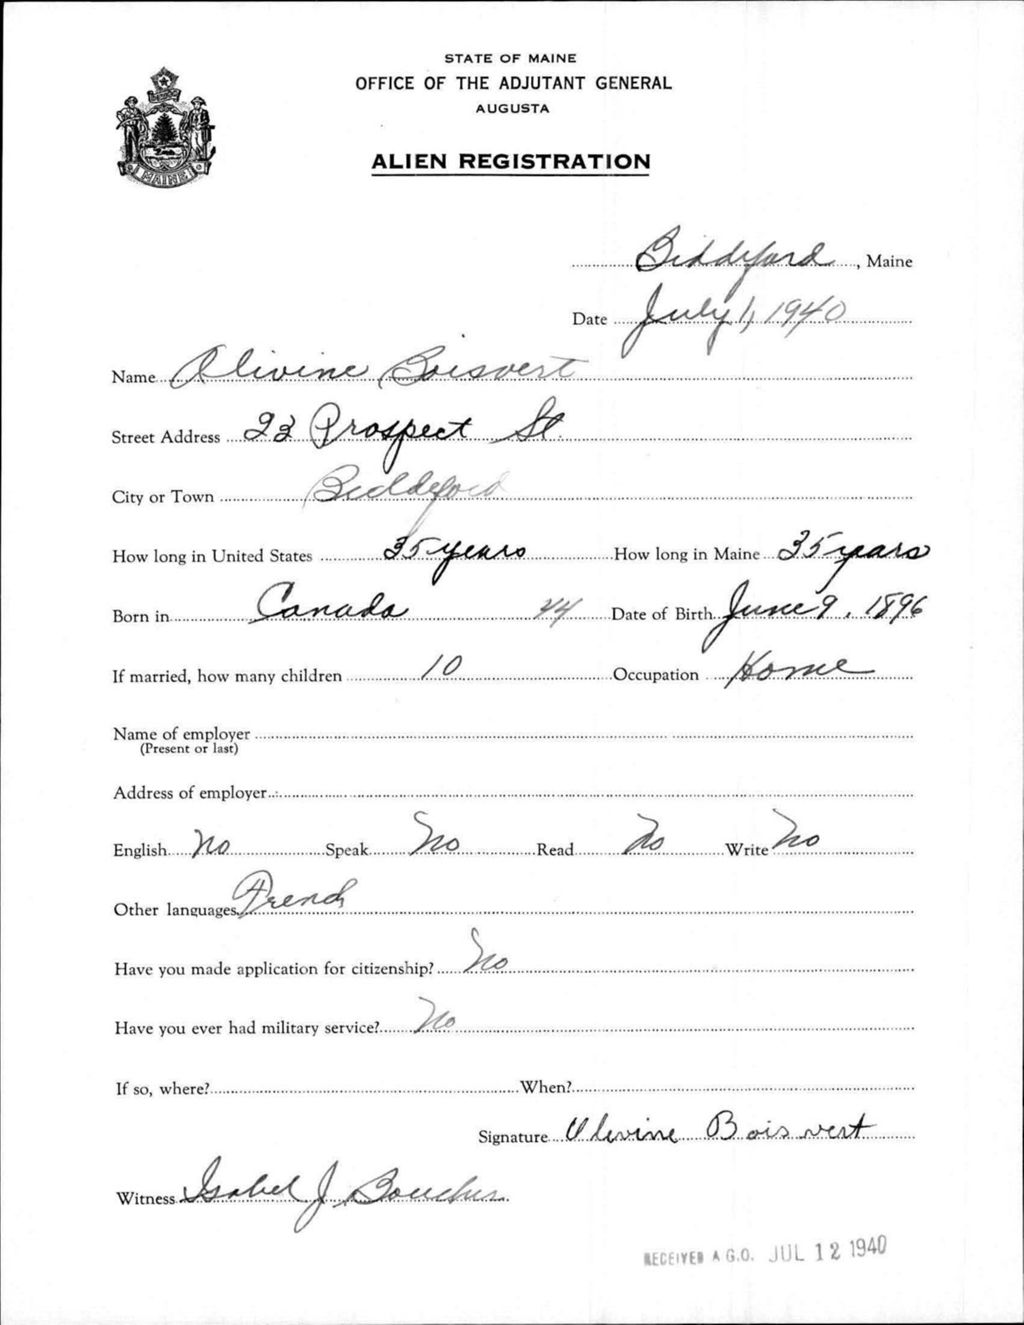 STATE OF MAINE
OFFICE OF THE ADJUTANT GENERAL
AUGUSTA
ALIEN REGISTRATION
MAINE
Biddeford, Maine
Date July 1, 1940
Name Olivine Boisvert
Street Address 23 Prospect St.
City or Town Biddeford
How long in United States 35 years How long in Maine 35 years
Born in Canada 44 Date of Birth June 9, 1896
If married, how many children 10 Occupation Home
Name of employer
(Present or last)
Address of employer
English No Speak No Read No Write No
Other languages French
Have you made application for citizenship? No
Have you ever had military service? No
If so, where? When?
Signature Olivine Boisvert
Witness Isabel J. Boucher
RECEIVED A.G.O. JUL 12 1940